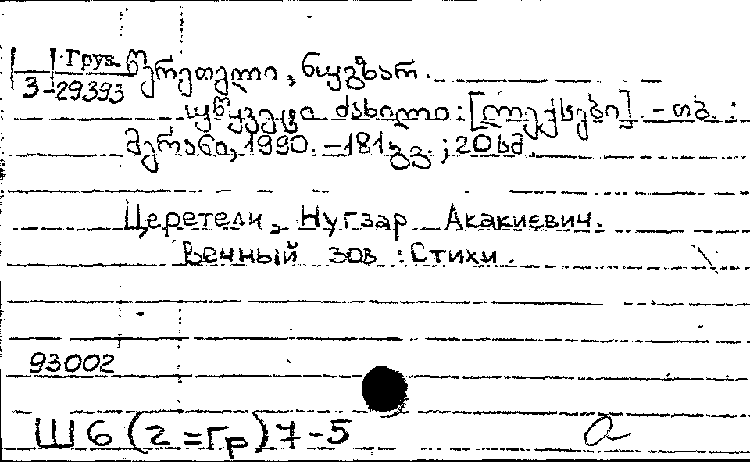 Груз.
3-29393
წერეთელი, ნუგზარ.
უწყვეტი ძახილი : [ლექსები]. - თბ. :
მერანი, 1990. - 181 გვ. ; 20 სმ.
Церетели, Нугзар Акакиевич.
Вечный зов : Стихи.
93002
Ш6(2=Гр)7-5
a